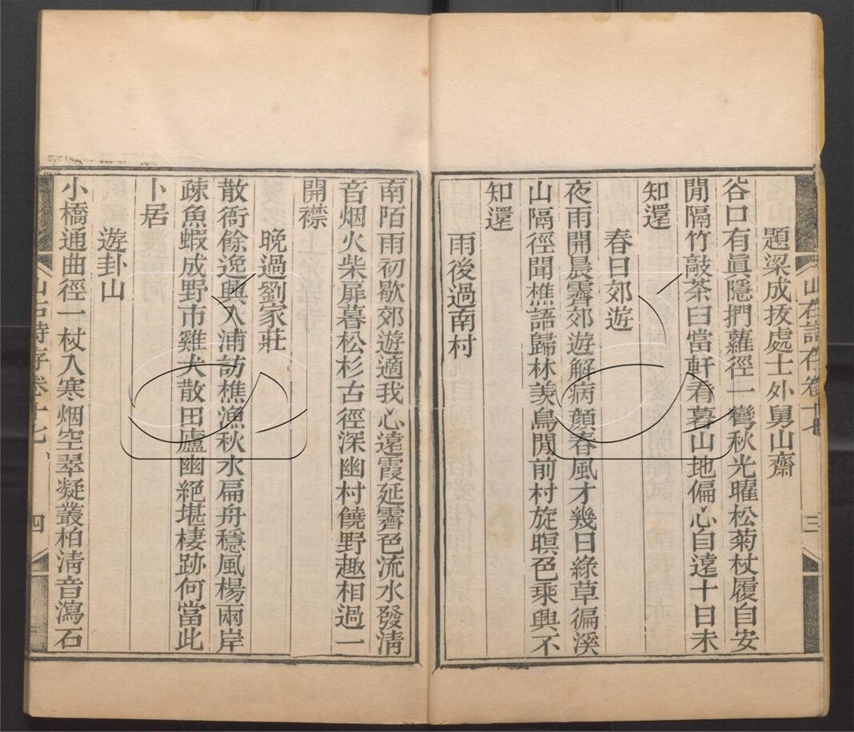 題梁成抜處士外舅山齋
谷口有眞隱捫蘿徑一彎秋光曜松菊杖履自安
閒隔竹敲茶臼當軒看暮山地偏心自遠十日未
知還
春日郊遊
夜雨開晨霽郊遊解病顏春風才幾日綠草徧溪
山隔徑聞樵語歸林羡鳥閒前村旋暝色乘興不
知還
雨後過南村
南陌雨初歇郊遊適我心遠霞延霽色流水發淸
音烟火柴扉暮松杉古徑深幽村饒野趣相過一
開襟
晚過劉家莊
散衙餘逸興入浦訪樵漁秋水扁舟穩風楊兩岸
疎魚蝦成野市雞犬散田廬幽絕堪棲跡何當此
卜居
遊卦山
小橋通曲徑一杖入寒烟空翠凝叢柏淸音瀉石
山右詩存卷十七
四